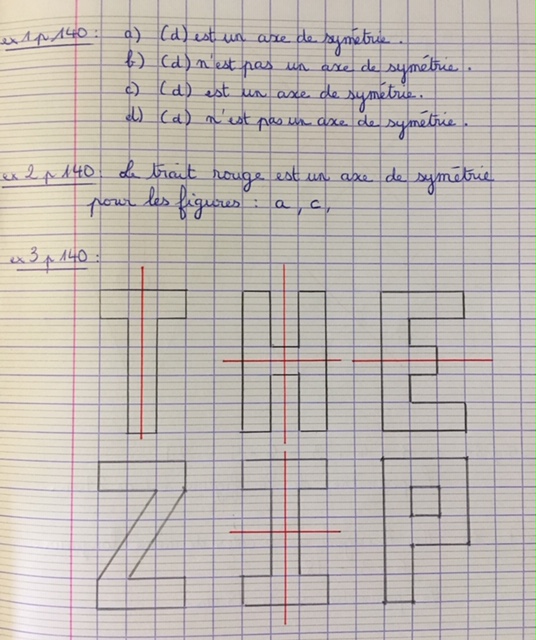 ex 1 p 140 : a) (d) est un axe de symétrie.
b) (d) n'est pas un axe de symétrie.
c) (d) est un axe de symétrie.
d) (d) n'est pas un axe de symétrie.
ex 2 p 140 : Le trait rouge est un axe de symétrie
pour les figures : a, c,
ex 3 p 140 :
T H E
Z I P